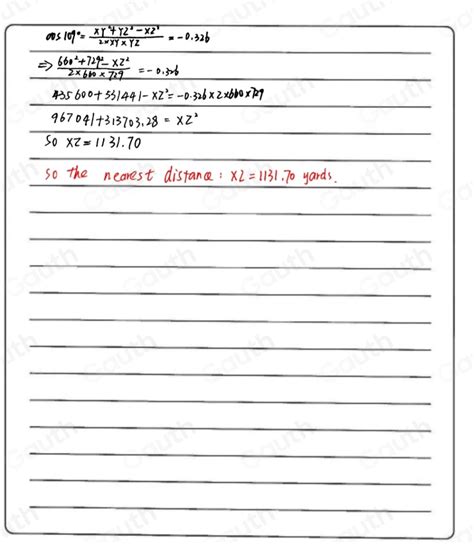 cos109° = (XY²+YZ²-XZ²)/(2×XY×YZ) = -0.326
⇒ (660²+729²-XZ²)/(2×660×729) = -0.326
435600+531441-XZ²=-0.326×2×660×729
967041+313703.28 = XZ²
So XZ=1131.70
So the nearest distance: XZ=1131.70 yards.
Gauth